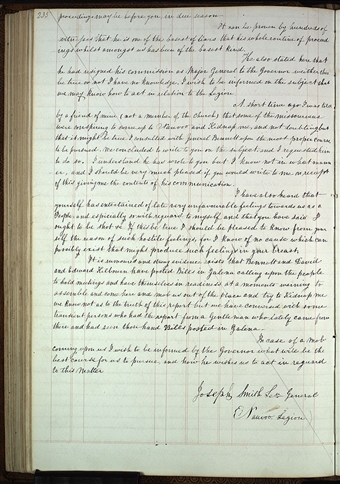 235
proceedings may be before you in due season.
It can be proven by hundreds of
witnesses that he is one of the basest of liars that his whole routine of proceed
ings whilst amongst us has been of the basest kind.
He also stated here that
he had resigned his commission as Major General to the Governor whether this
be true or not I have no knowledge, I wish to be informed on the subject that
we may know how to act in relation to the Legion.
A short time ago I was told
by a friend of mine, (not a member of the church) that some of the missourians
were conspiring to come up to Nauvoo and Kidnap me, and not doubting but
that it might be true I consulted with General Bennett upon the most proper course
to be pursued. We concluded to write to you on the subject and I requested him
to do so. I understand he has wrote to you but I know not in what mann
er, and I should be very much pleased if you would write to me on receipt
of this giving me the contents of his communication.
I have also heard that
yourself has entertained of late very unfavorable feelings towards us as a
People and especially so with regard to myself and that you have said I
ought to be shot &c. If this be true I should be pleased to know from you
self the reason of such hostile feelings, for I know of no cause which can
possibly exist that might produce such feelings in your breast.
It is rumored and strong evidence exists that Bennett and David
and Edward Kilbourn have posted Bills in Galena calling upon the people
to hold meetings and have themselves in readiness at a moments warning to
assemble and come here and mob us out of the place and try to Kidnap me
we know not as to the truth of this report but we have conversed with some
transient persons who had the report from a gentleman who lately came from
there and had seen those hand Bills posted in Galena.
In case of a mob
coming upon us I wish to be informed by the Governor what will be the
best course for us to pursue, and how he wishes us to act in regard
to this Matter
Joseph Smith Lt General
Nauvoo Legion